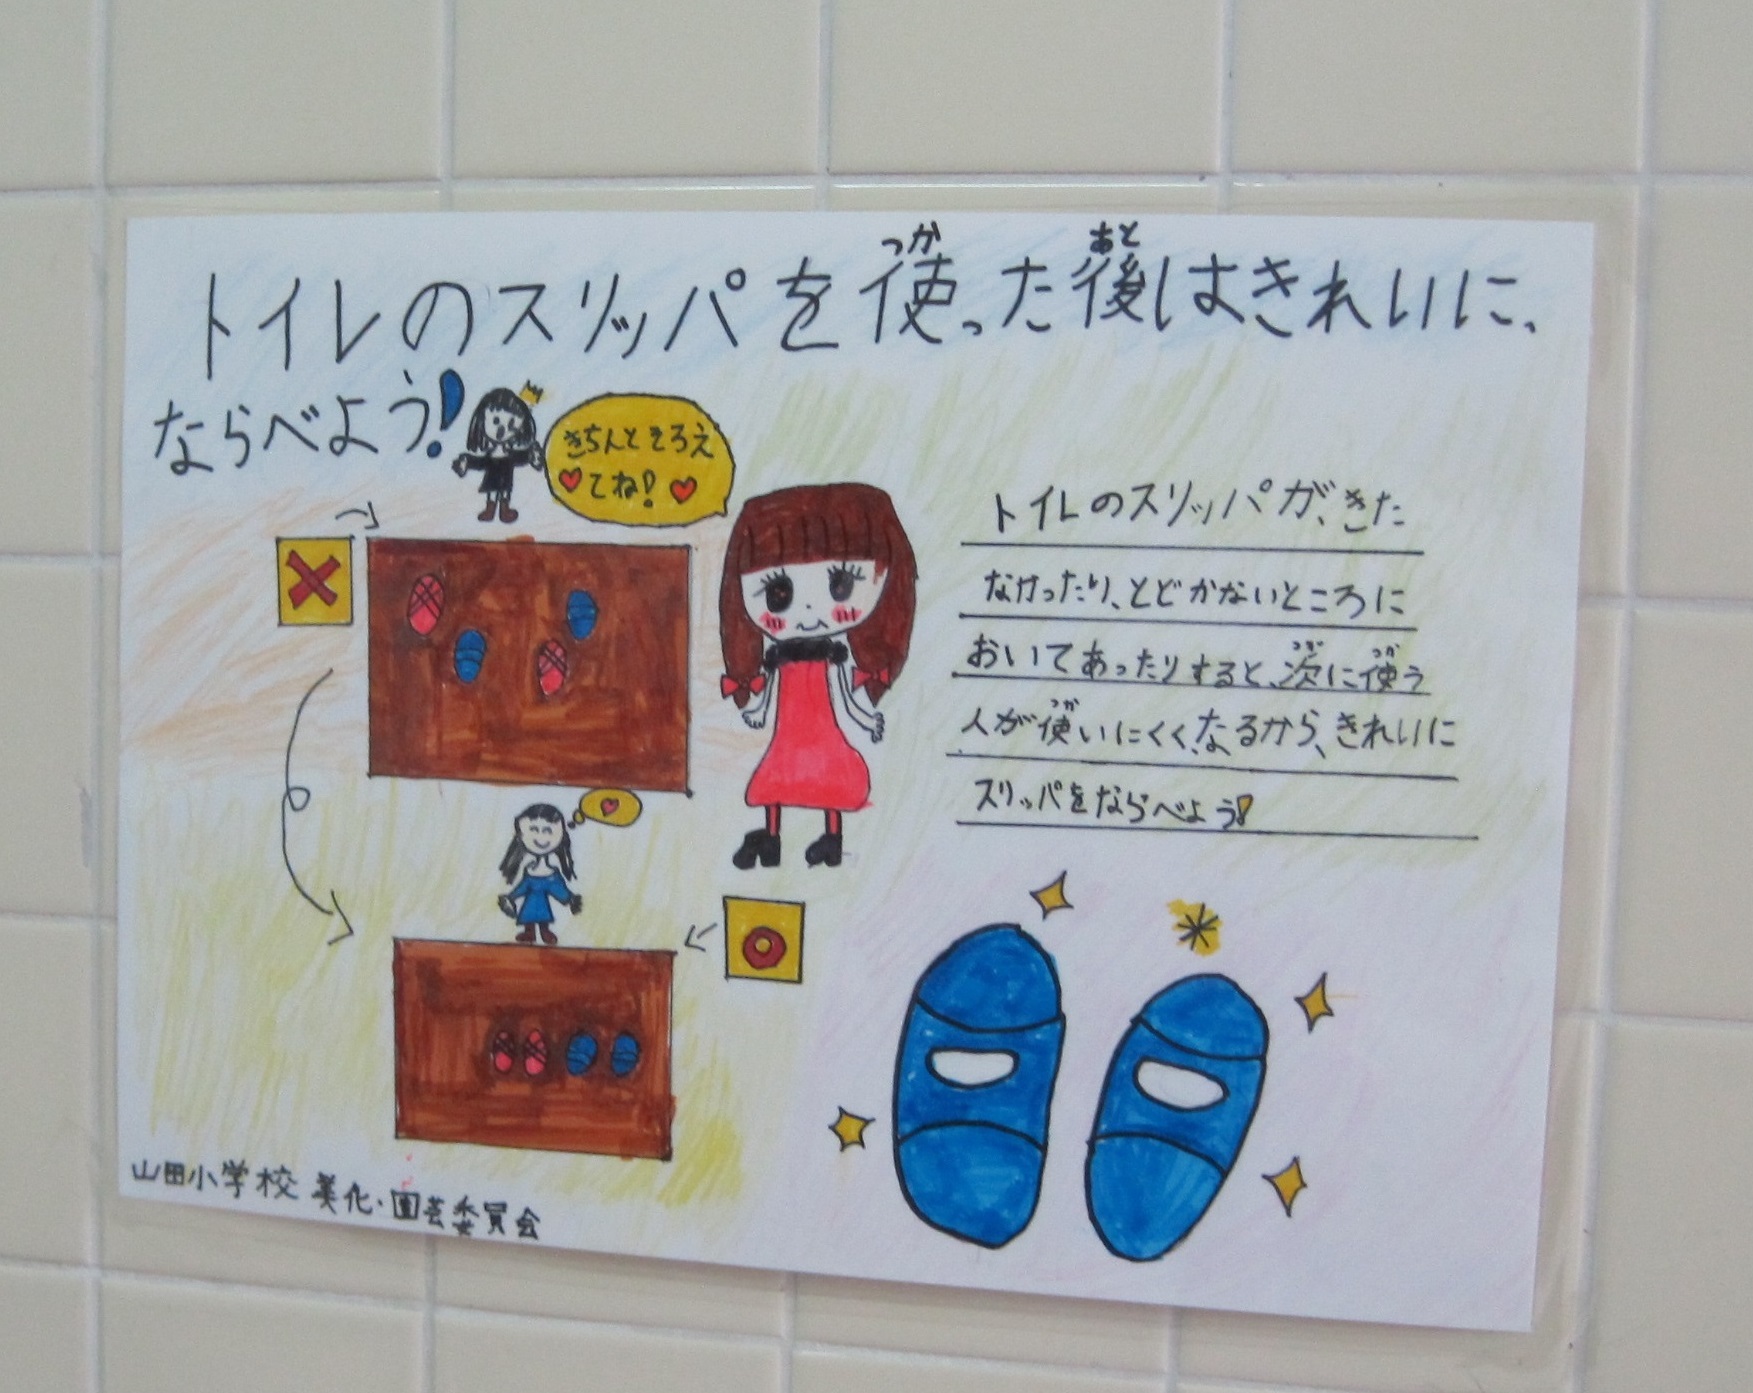 トイレのスリッパを使った後はきれいに、
つか
あと
ならべよう!
きちんとそろえ
てね!
トイレのスリッパが、きた
なかったり、とどかないところに
おいてあったりすると、次に使う
つぎ
つか
人が使いにくくなるから、きれいに
つか
スリッパをならべよう!
山田小学校 美化・園芸委員会